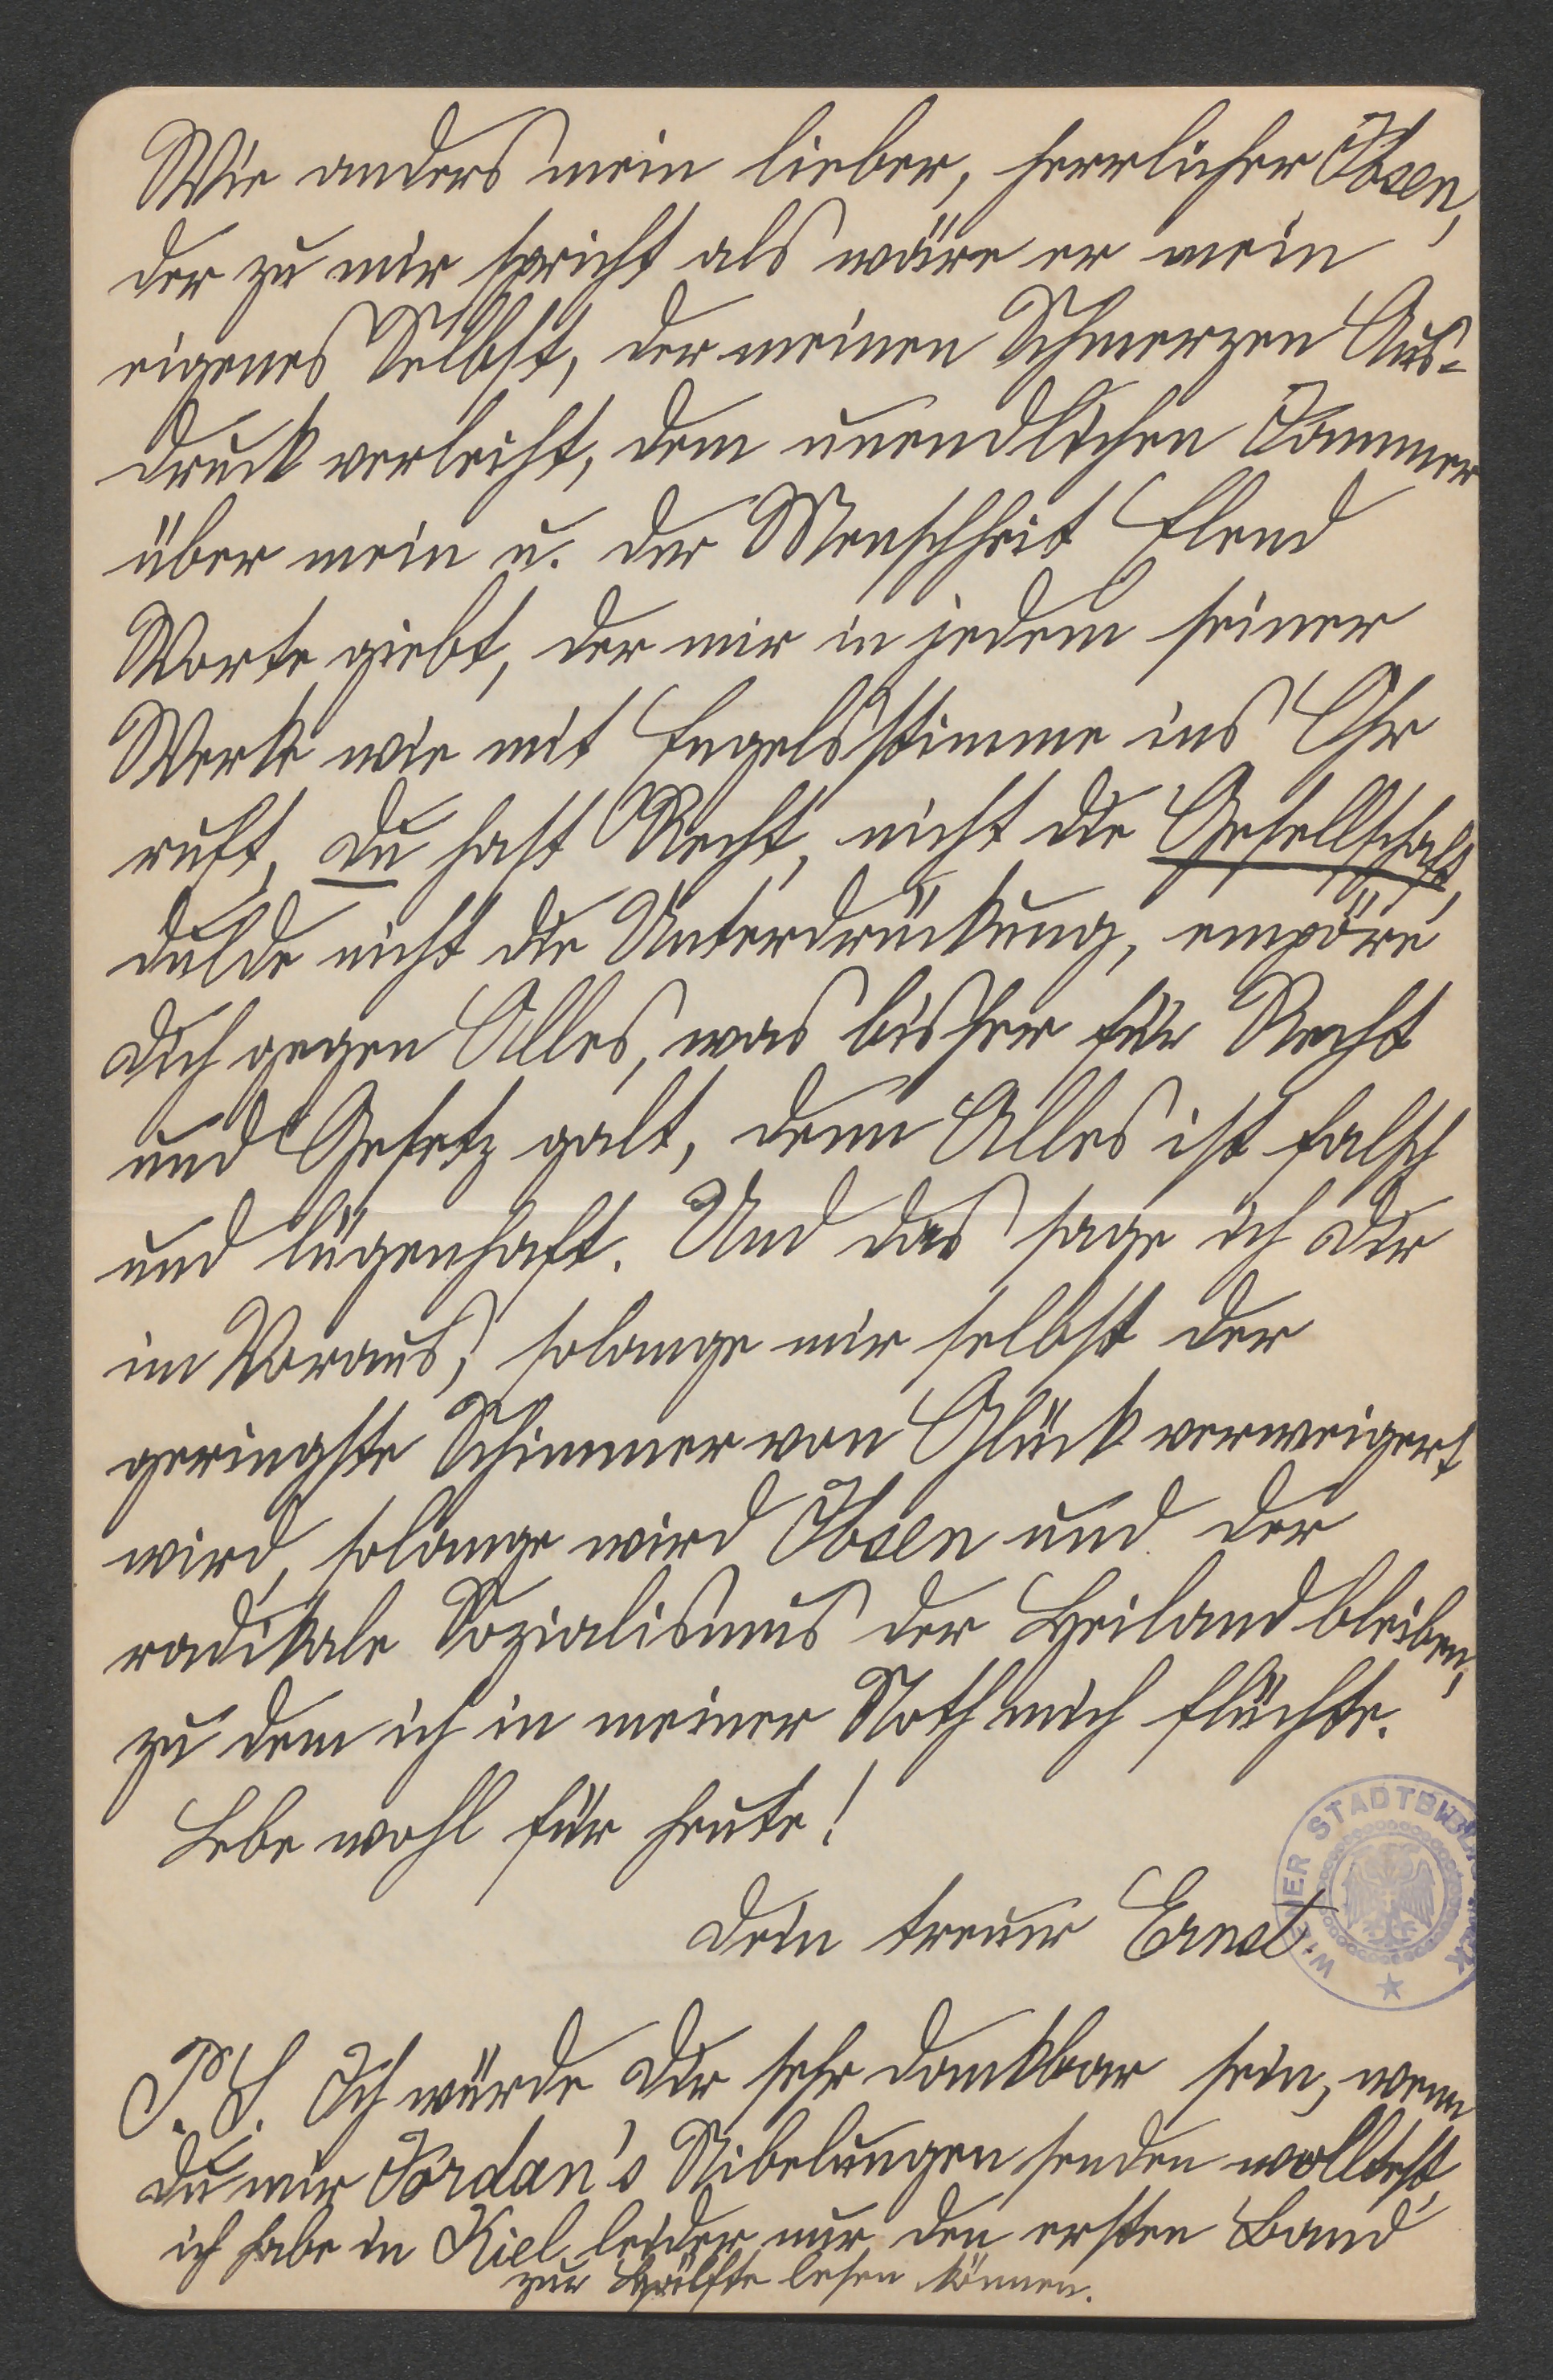 Wie anders mein lieber, herrlicher Ibsen,
der zu mir spricht als wäre er mein
eigenes Selbst, der meinen Schmerzen Aus-
druck verleiht, dem unendlichen Jammer
über mein u. der Menschheit Elend
Worte giebt, der mir in jedem seiner
Werke wie mit Engelsstimme ins Ohr
ruft, du hast Recht, nicht die Gesellschaft,
dulde nicht die Unterdrückung, empöre
dich gegen Alles, was bisher für Recht
und Gesetz galt, denn Alles ist falsch
und lügenhaft. Und das sage ich dir
im Voraus, solange mir selbst der
geringste Schimmer von Glück verweigert
wird, solange wird Ibsen und der
radikale Sozialismus der Heiland bleiben,
zu dem ich in meiner Noth mich flüchte.
Lebe wohl für heute!
Dein treuer Ernst
WIENER STADTBIBLIOTHEK
P. S. Ich würde dir sehr dankbar sein, wenn
du mir Jordan's Nibelungen senden wolltest,
ich habe in Kiel leider nur den ersten Band
zur Hälfte lesen können.